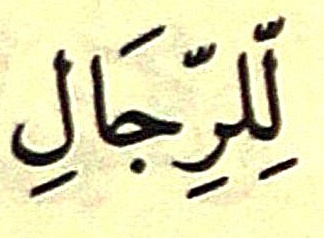 لِّلرِّجَالِ